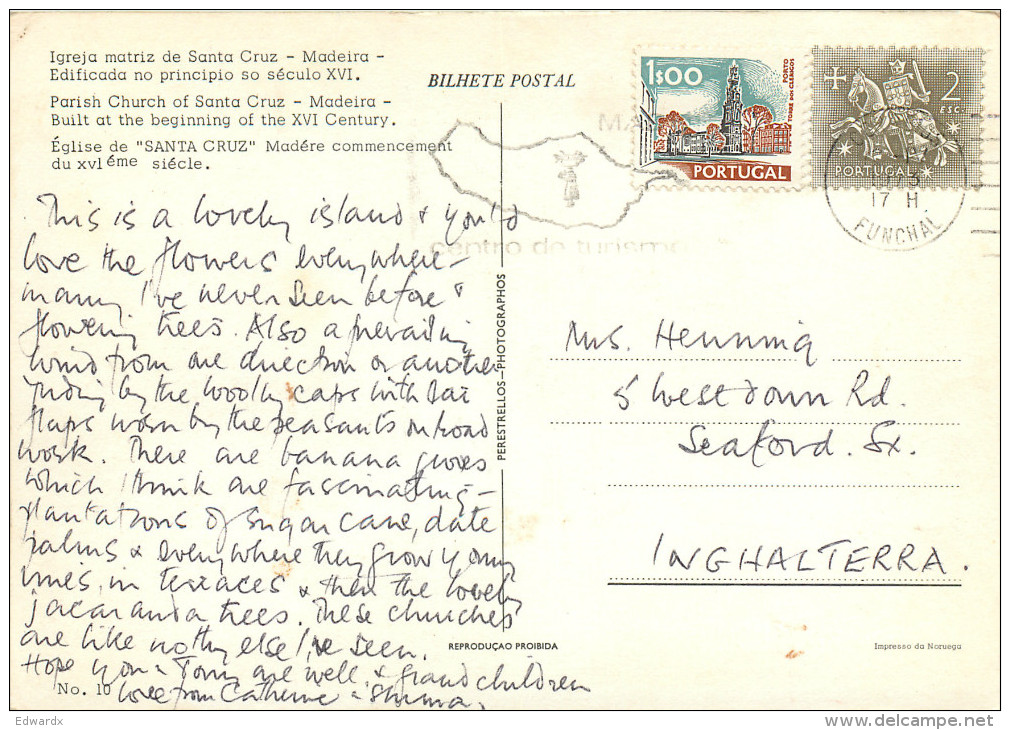 Igreja matriz de Santa Cruz - Madeira -
Edificada no principio so século XVI.
Parish Church of Santa Cruz - Madeira -
Built at the beginning of the XVI Century.
Église de "SANTA CRUZ" Madére commencement
du xvI éme siécle.
BILHETE POSTAL
1$00
PORTO
TORRE DOS CLERIGOS
PORTUGAL
2
ESC
PORTUGAL
17 H
FUNCHAL
centro de turismo
This is a lovely island & you'd
love the flowers everywhere -
many I've never seen before &
flowering trees. Also a prevailing
wind from one direction or another
judging by the woolly caps with ear
flaps worn by the peasants on road
work. There are banana groves
which I think are fascinating -
plantations of sugar cane, date
palms & everywhere they grow young
vines, in terraces & then the lovely
jacaranda trees. These churches
are like nothing else I've seen.
Hope you & Tony are well & grandchildren
Love from Catherine &
No. 10
PERESTRELLOS-PHOTOGRAPHOS
REPRODUÇAO PROIBIDA
Mrs. Henning
5 Westdown Rd.
Seaford. Sx.
INGHALTERRA.
Impresso da Noruega
Edwardx
delcampe.net